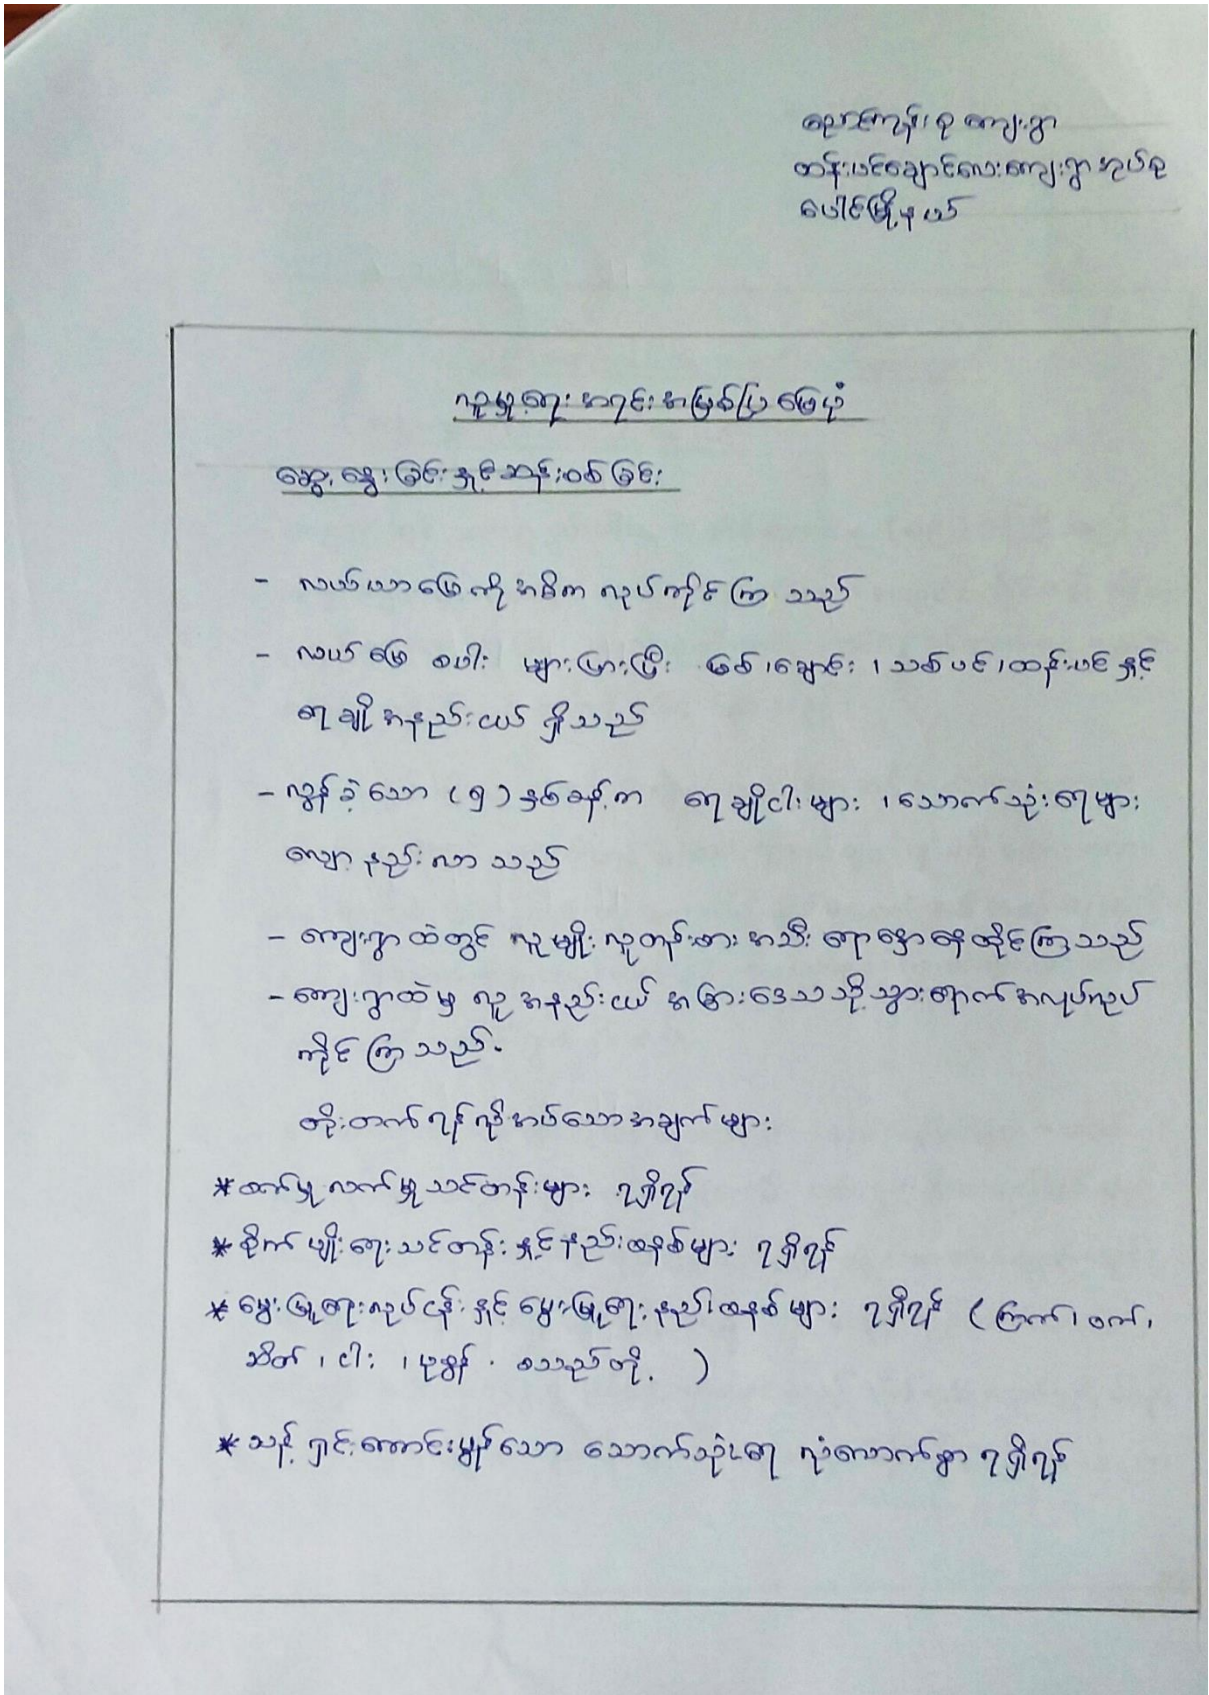 ညောင်ကုန်းစု ကျေးရွာ
ထန်းပင်ချောင်လေးကျေးရွာအုပ်စု
ပေါင်မြို့နယ်
လူမှုရေး အရင်းအမြစ်ပြ မြေပုံ
ဆွေးနွေးခြင်းနှင့်ဆန်းစစ်ခြင်း
- လယ်ယာမြေကို အဓိက လုပ်ကိုင်ကြသည်
- လယ်မြေ စပါး များပြားပြီး မြစ်၊ချောင်း ၊သစ်ပင်၊ထန်းပင်နှင့်
ရေချို အနည်းငယ် ရှိသည်
- လွန်ခဲ့သော (၅) နှစ်ခန့်က ရေချိုငါးများ ၊သောက်သုံးရေများ
လျော့နည်းလာသည်
- ကျေးရွာထဲတွင် လူမျိုး လူတန်းစား အသီး ရောနှောနေထိုင်ကြသည်
- ကျေးရွာထဲမှ လူ အနည်းငယ် အခြားဒေသသို့သွားရောက်အလုပ်လုပ်
ကိုင်ကြသည်.
တိုးတက်ရန်လိုအပ်သောအချက်များ
* စက်မှုလက်မှုသင်တန်းများ ရရှိရန်
* စိုက်ပျိုးရေးသင်တန်းနှင့်နည်းစနစ်များ ရရှိရန်
* မွေးမြူရေးလုပ်ငန်းနှင့် မွေးမြူရေးနည်းစနစ်များ ရရှိရန် (ကြက်၊ ဝက်၊
ဆိတ် ၊ ငါး ၊ပုစွန် . စသည်တို့ )
* သန့်ရှင်းကောင်းမွန်သော သောက်သုံးရေ လုံလောက်စွာ ရရှိရန်